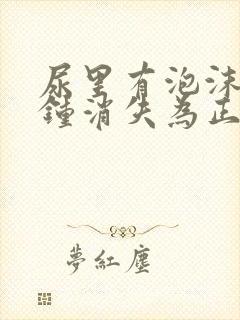 尿里有泡沫
鍾消失為正
夢紅塵